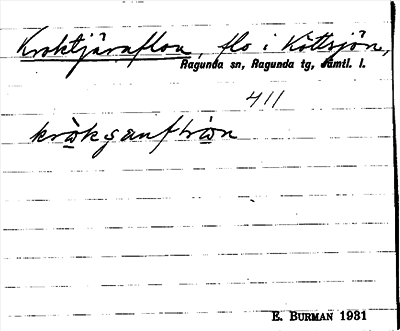 Kroktjärnflon, flo i Köttsjön,
Ragunda sn, Ragunda tg, Jämtl. l.
411
E. BURMAN 1931